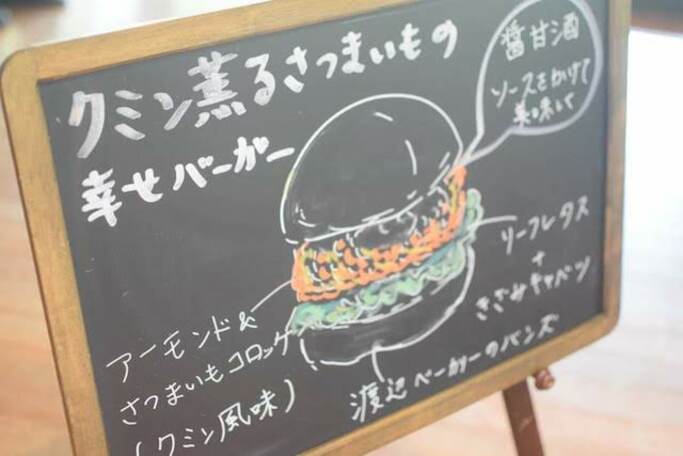 クミン薫るさつまいもの
幸せバーガー
醤甘酒
ソースをかけて
美味しく
リーフレタス
+
きざみキャベツ
アーモンド&
さつまいもコロッケ
(クミン風味)
渡辺ベーカリーのバンズ